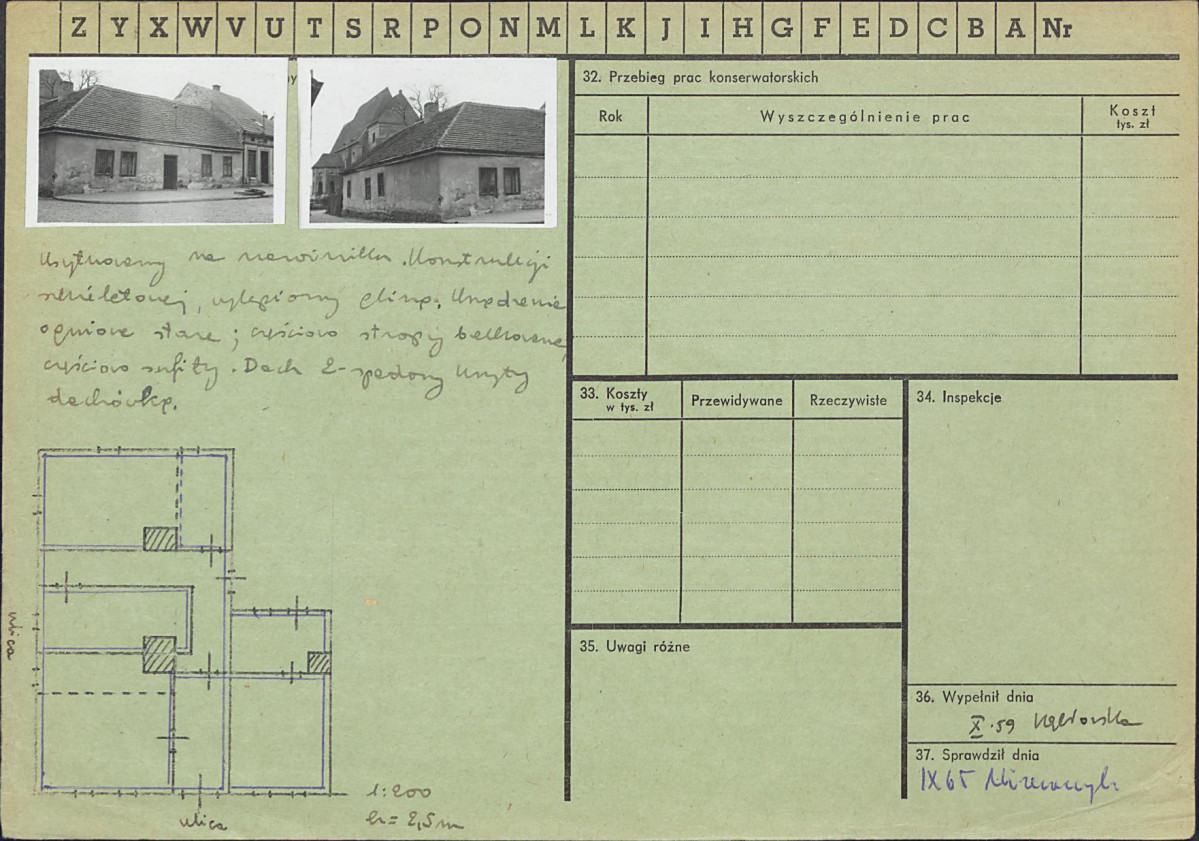 Z Y X W V U T S R P O N M L K J I H G F E D C B A Nr
ny
Usytuowany na narożniku. Konstrukcji
szkieletowej, wylepiony gliną. Urządzenie
ogniowe stare; częściowo stropy belkowane,
częściowo sufity. Dach 2-spadowy kryty
dachówką.
ulica
ulica
1:200
h = 2,5 m
32. Przebieg prac konserwatorskich
Rok
Wyszczególnienie prac
Koszt
tys. zł
33. Koszty
w tys. zł
Przewidywane
Rzeczywiste
34. Inspekcje
35. Uwagi różne
36. Wypełnił dnia
X.59
37. Sprawdził dnia
IX 65